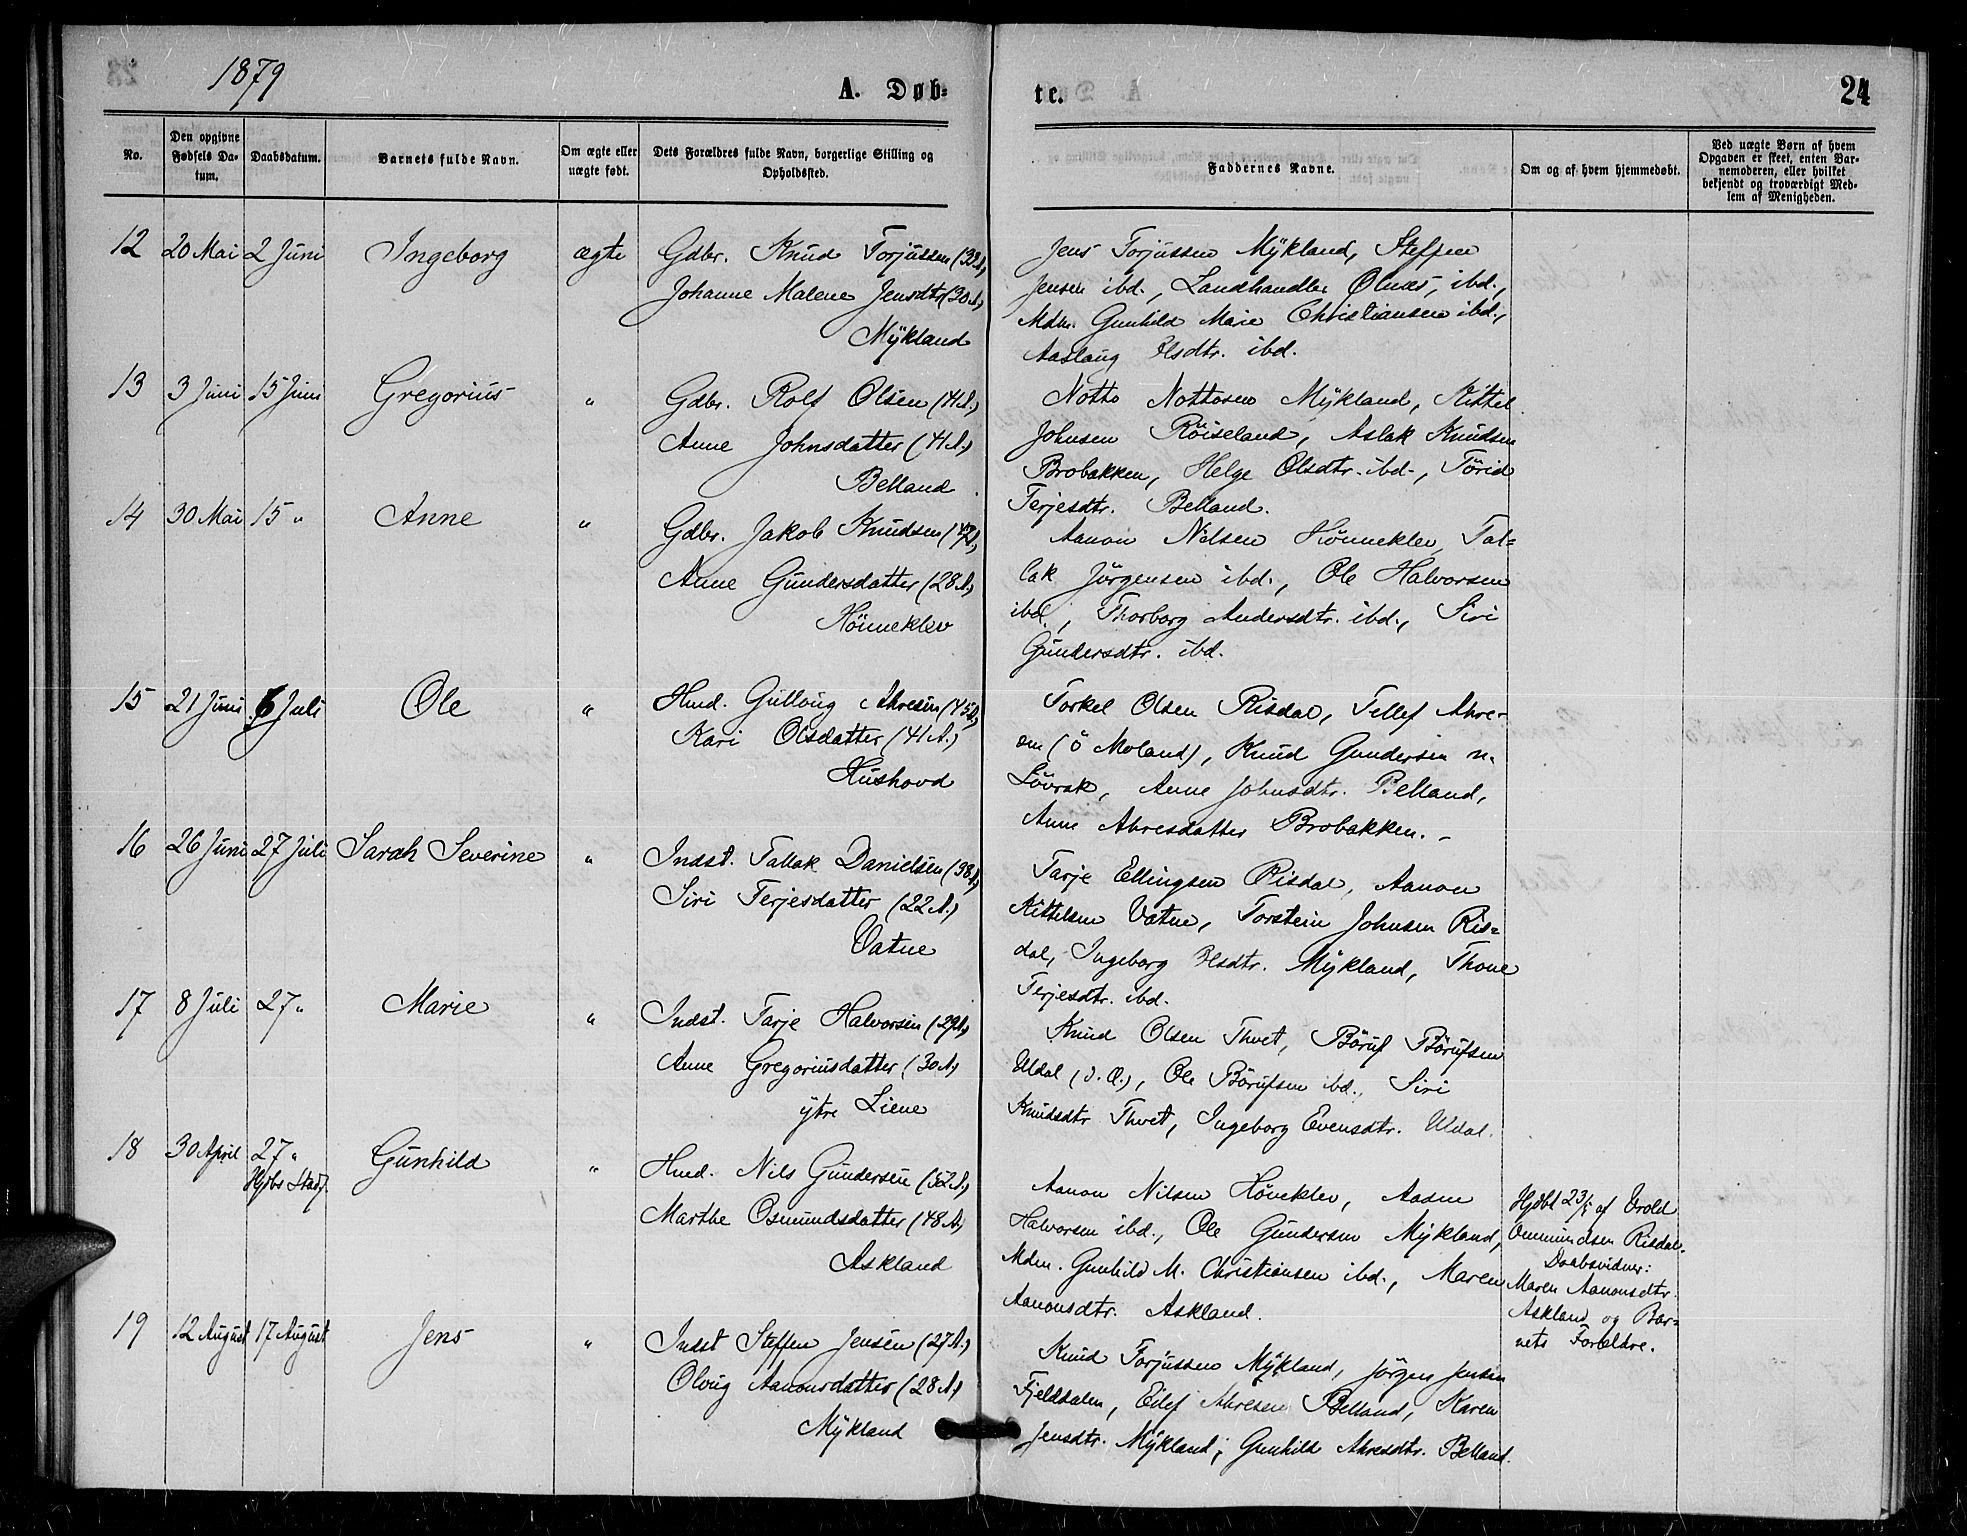 1879
A. Døb=
te.
24
No.
Den opgivne Fødsels Da-tum.
Daabsdatum.
Barnets fulde Navn.
Om ægte eller uægte født.
Dets Forældres fulde Navn, borgerlige Stilling og Opholdssted.
Faddernes Navne.
Om og af hvem hjemmedøbt.
Ved uægte Børn af hvem Opgaven er skeet, enten Bar-nemoderen, eller hvilket bekjendt og troværdigt Med-lem af Menigheden.
12 20 Mai 2 Juni Ingeborg ægte Gdbr. Knud Torjussen
Johanne Malene Jensdtr (30 A.)
Mykland
Jens Torjussen Mykland, Steffen
Jensen ibd., Landhandler Ølnæs, ibd.,
Mdm. Gunhild Marie Christiansen ibd.,
Aaslaug Olsdtr. ibd.
13 3 Juni 15 Juni Gregorius " Gdbr. Rolf Olsen (41 A.)
Anne Johnsdatter (41 A.)
Belland
Notto Nottosen Mykland, Kittel
Johnsen Röiseland, Aslak Knudsen
Brobakken, Helge Olsdtr. ibd., Törid
Terjesdtr. Belland.
14 30 Mai 15 " Anne " Gdbr. Jakob Knudsen
Anne Gundersdatter (28 A.)
Hönneklev
Aanon Nilsen Hönneklev, Tal=
lak Jörgensen ibd., Ole Halvorsen
ibd., Thorborg Andersdtr. ibd., Siri
Gundersdtr. ibd.
15 21 Juni 6 Juli Ole " Hmd. Gullaug Ahresen (45 A.)
Kari Olsdatter (41 A.)
Hushovd
Torkel Olsen Risdal, Tellef Ahre-
sen (ö Moland), Knud Gundersen n.
Lövrak, Anne Johnsdtr. Belland,
Anne Ahresdatter Brobakken. -
16 26 Juni 27 Juli Sarah Severine " Indst. Tallak Danielsen (38 A.)
Siri Terjesdatter (22 A.)
Vatne
Tarje Ellingsen Risdal, Aanon
Kittelsen Vatne, Torstein Johnsen Ris=
dal, Ingeborg Olsdtr. Mykland, Thone
Terjesdtr. ibd.
17 8 Juli 27 " Marie " Indst. Tarje Halvorsen (29 A.)
Anne Gregoriusdatter (30 A.)
ytre Liene
Knud Olsen Thvet, Böruf Börufsen
Uldal, Ole Börufsen ibd., Siri
Knudsdtr Thvet, Ingeborg Evensdtr. Uldal.
18 30 April 27 " Gunhild " Hmd. Nils Gundersen (52 A.)
Hjdbs Stadf.
Marthe Osmundsdatter (48 A.)
Askland
Aanon Nilsen Hönneklev, Aadne
Halvorsen ibd., Ole Gundersen Mykland,
Mdm. Gunhild M. Christiansen ibd., Maren
Aanonsdtr. Askland.
Hjdbt 23/5 af Arold
Ommundsen Risdal.
Daabsvidner:
Maren Aanonsdtr.
Askland og Bar=
nets Forældre.
19 12 August 17 August Jens " Indst Steffen Jensen (27 A.)
Olvug Aanonsdatter (28 A.)
Mykland
Knud Torjussen Mykland, Jörgen Jensen
Fjeldsalen, Eilef Ahresen Belland, Karen
Jensdtr. Mykland, Gunhild Ahresdtr. Belland.